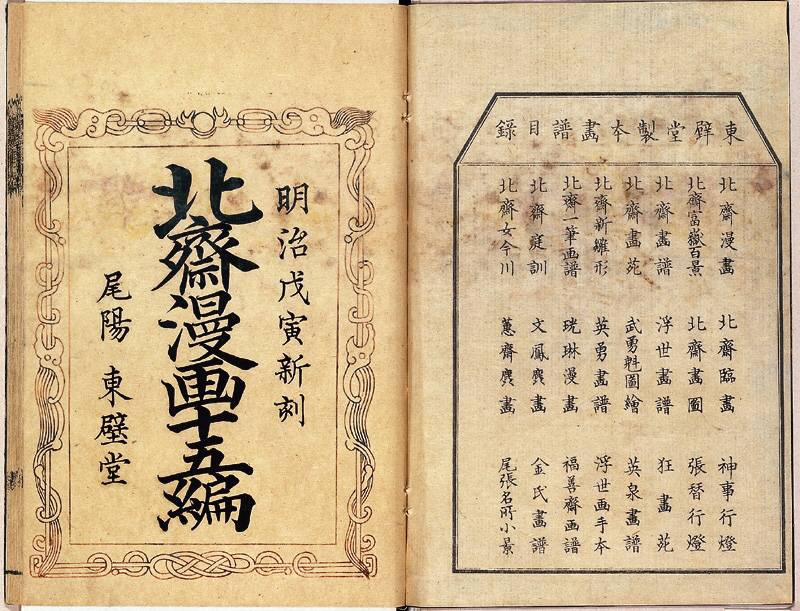 東壁堂製夲畫譜目錄
北齋漫畫 北齋臨畫 神事行燈
北齋富嶽百景 北齋畫圖 張替行燈
北齋畫譜 浮世畫譜 狂畫苑
北齋畫苑 武勇魁圖繪 英泉畫譜
北齋新雛形 英勇畫譜 浮世画手夲
北齋一筆画譜 珖琳漫畫 福善齋画譜
北齋庭訓 文鳳麁畫 金氏畫譜
北齋女今川 蕙齋麁畫 尾張名所小景
明治戊寅新刻
北齋漫画十五編
尾陽 東壁堂